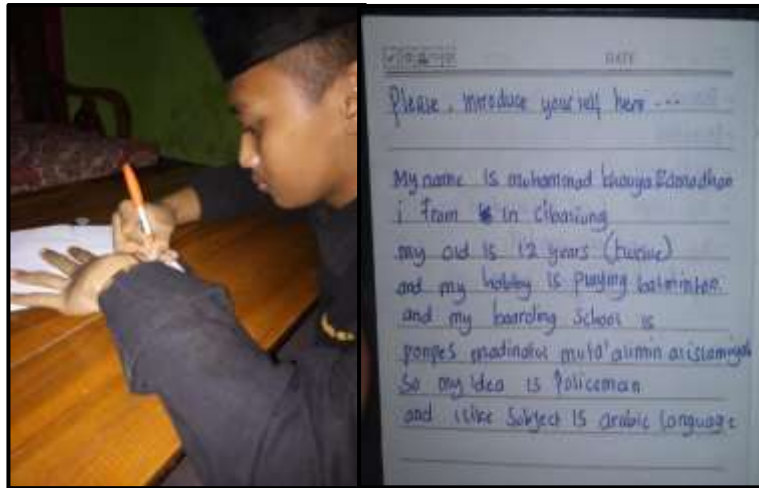 DATE
Please, introduce yourself here ...
My name is muhammad Ramadhan
i from in cibaniung
my old is 12 years (twelve)
and my hobby is playing batminton
and my boarding School is
ponpes madinatul muta'alimin al islamiyah
So my idea is Policeman
and i like Subject is arabic language